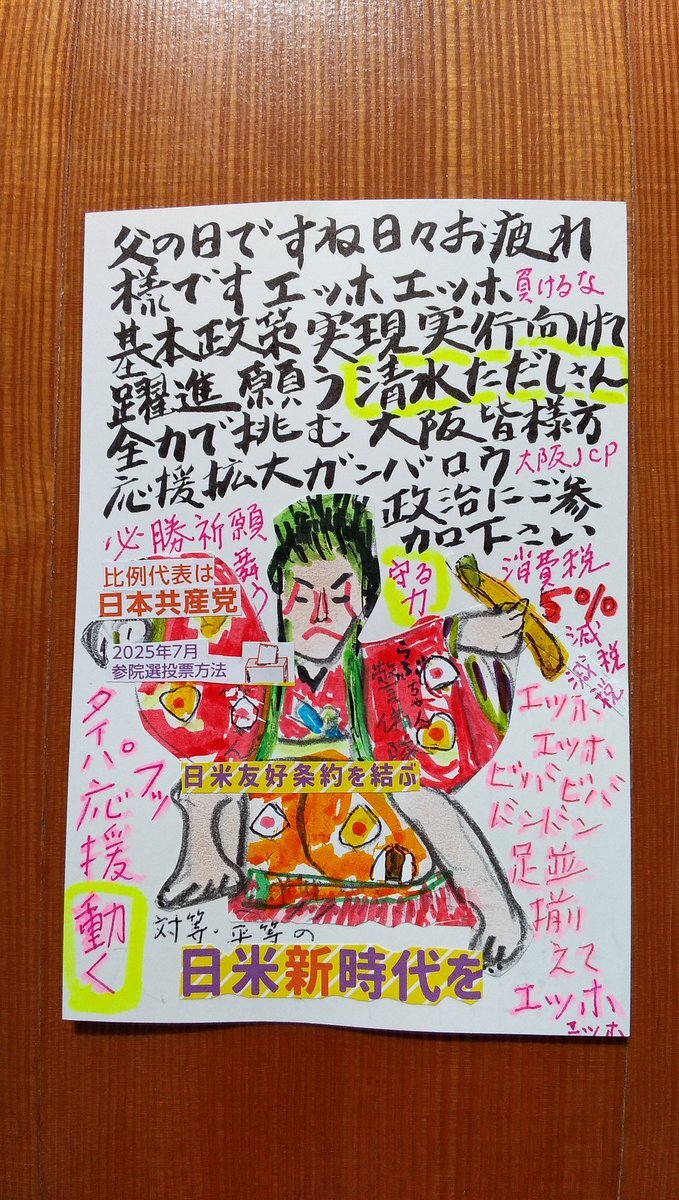 父の日ですね日々お疲れ
様ですエッホエッホ負けるな
基本政策実現実行向けて
躍進願う清水ただしさん
全力で挑む大阪皆様方
応援拡大ガンバロウ大阪JCP
政治にご参
加下さい
必勝祈願
舞う
比例代表は
日本共産党
2025年7月
参院選投票方法
守る
力
消費税
5%
減税
減税
警備隊
日米友好条約を結ぶ
タイパ
アップ
応援
動く
エッホ
エッホ
ビバビバ
ドンドン
足並
揃
えて
エッホ
エッホ
対等・平等の
日米新時代を